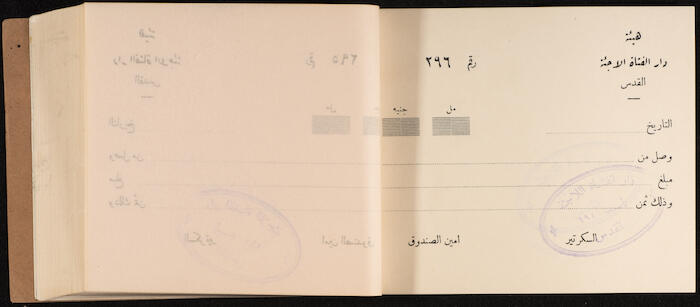 هيئة
دار الفتاة اللاجئة
القدس
رقم ٢٩٦
جنيه مل
التاريخ
وصل من
مبلغ
وذلك ثمن
امين الصندوق السكرتير